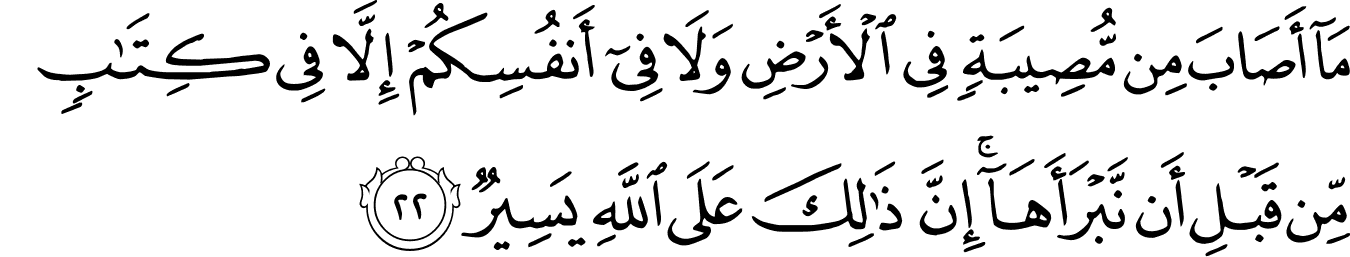 مَآ أَصَابَ مِن مُّصِيبَةٍۢ فِى ٱلْأَرْضِ وَلَا فِىٓ أَنفُسِكُمْ إِلَّا فِى كِتَـٰبٍۢ
مِّن قَبْلِ أَن نَّبْرَأَهَآ ۚ إِنَّ ذَٰلِكَ عَلَى ٱللَّهِ يَسِيرٌۭ ٢٢